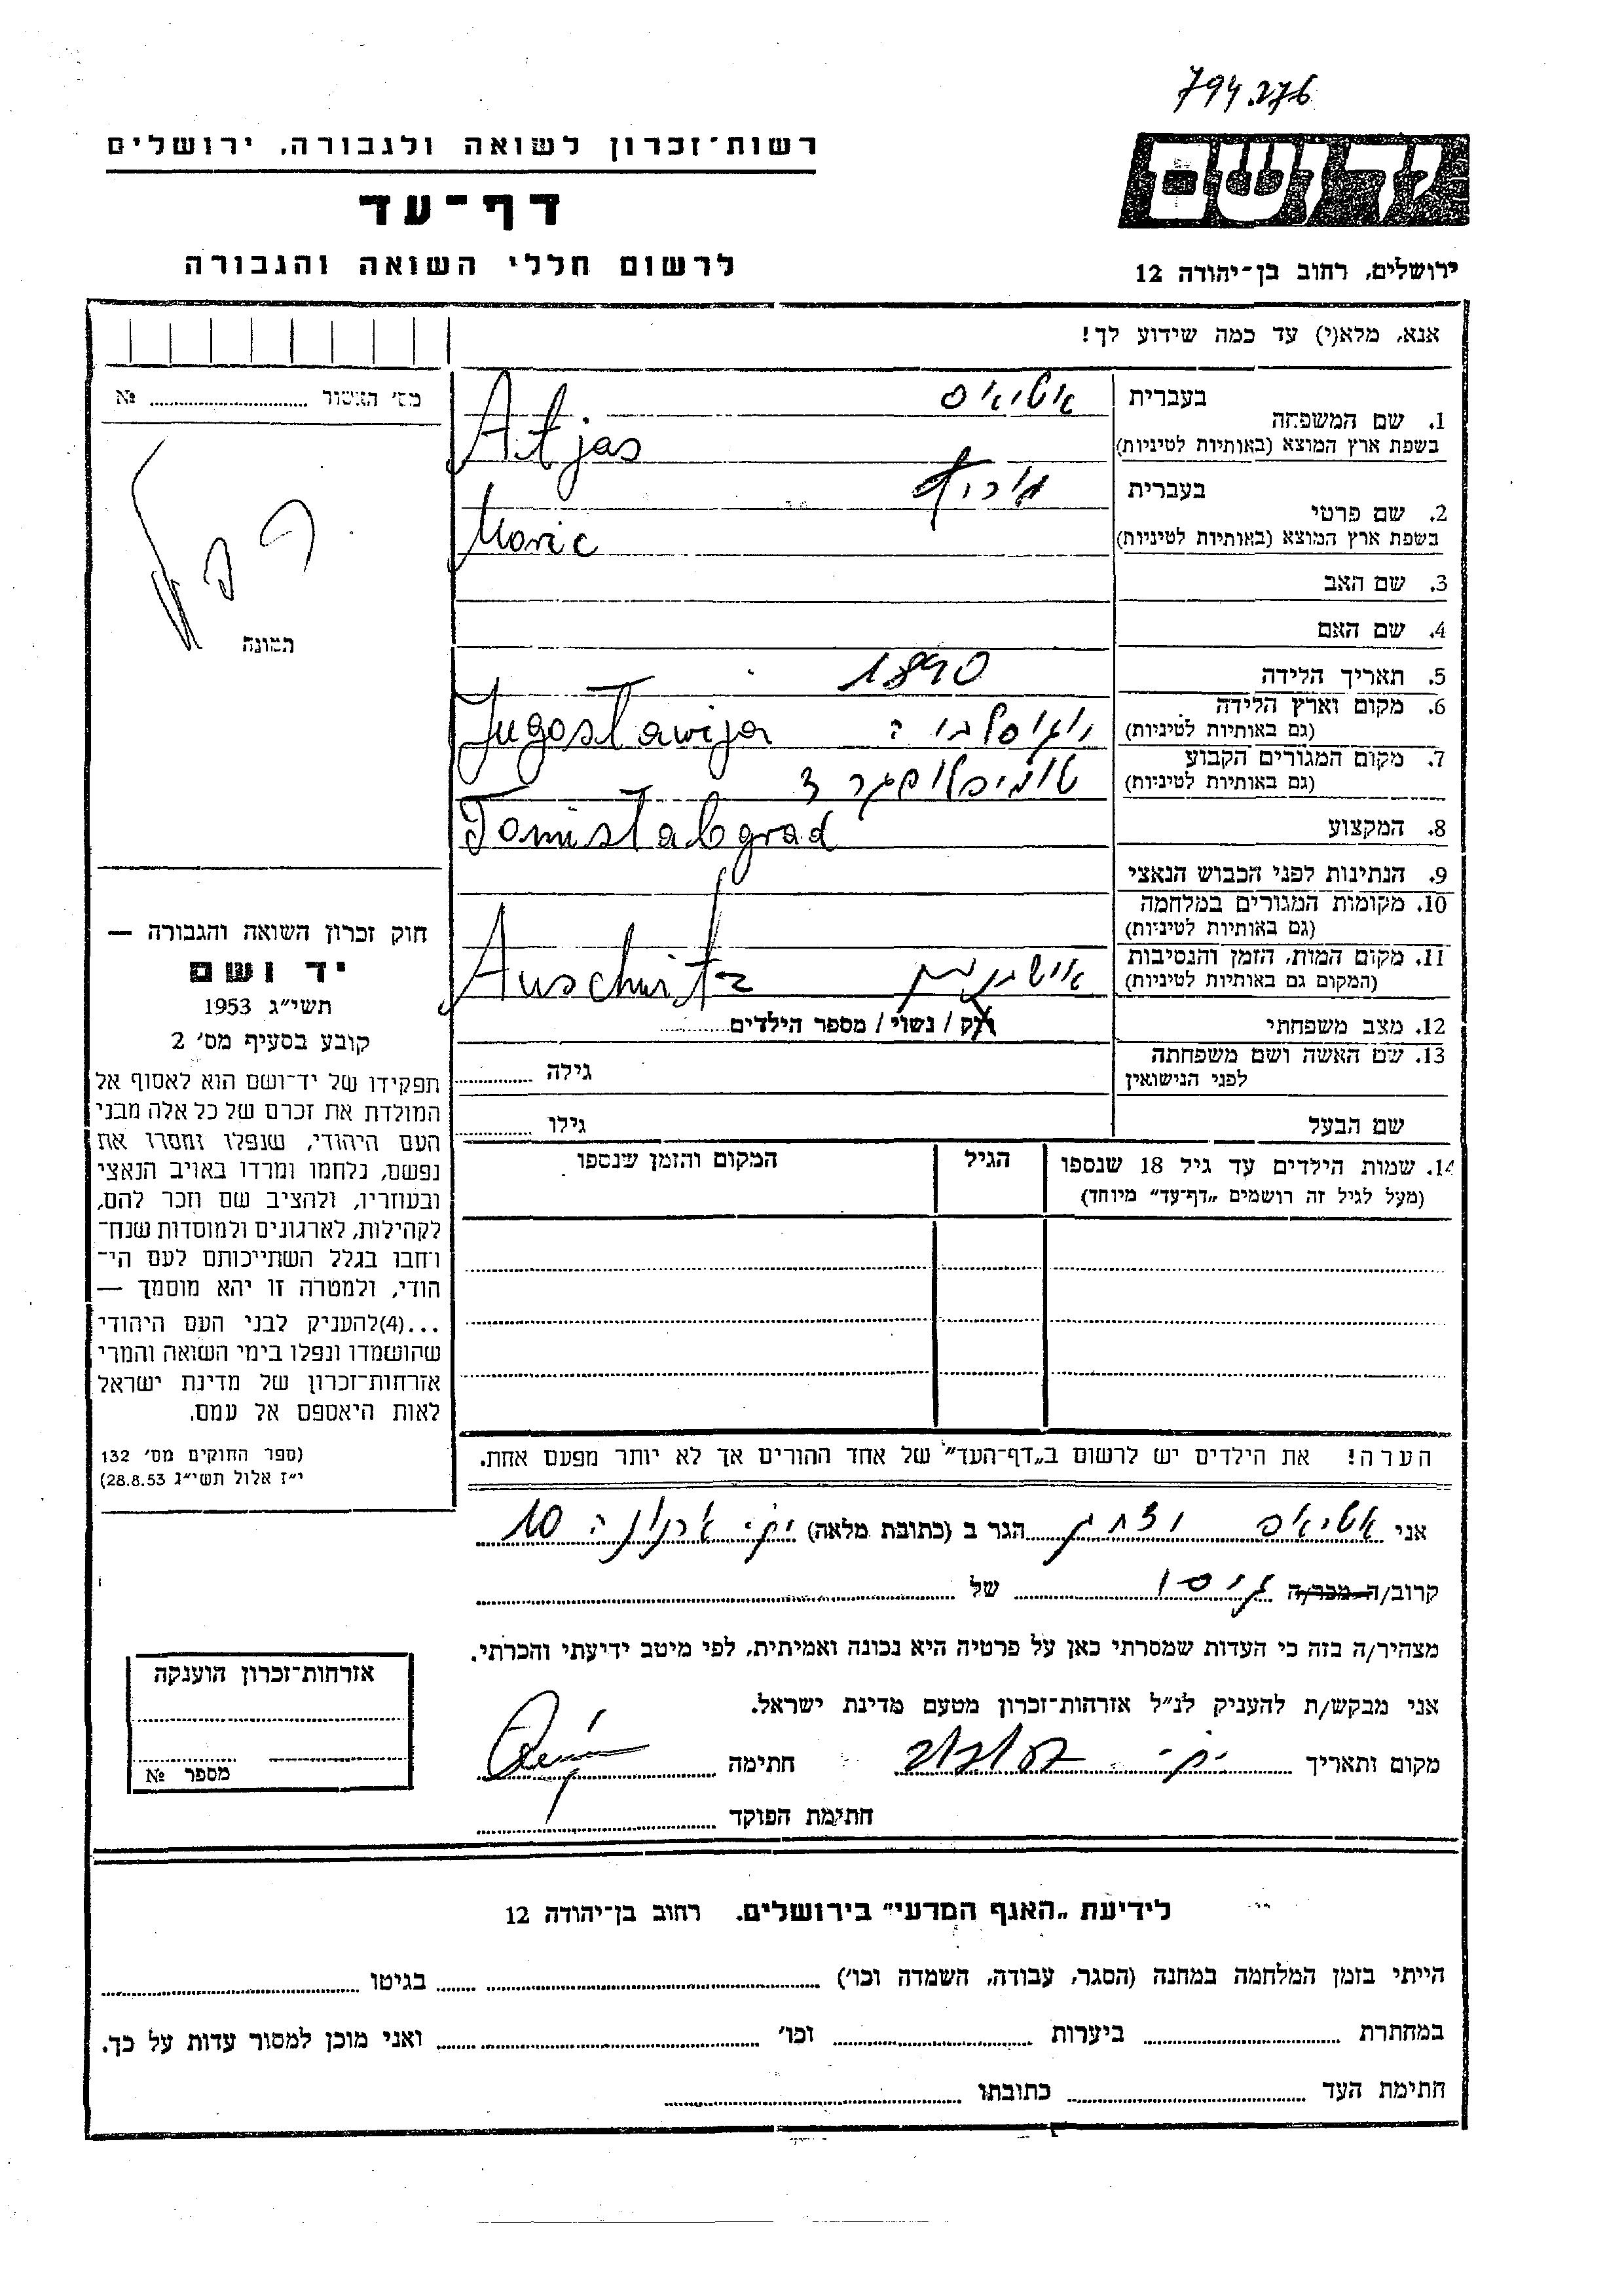 794.276
רשות־זכרון לשואה ולגבורה, ירושלים
דף־עד
לרשום חללי השואה והגבורה
יד ושם
ירושלים, רחוב בן־יהודה 12
אנא, מלא(י) עד כמה שידוע לך!
מס׳ האשור № ........
תמונה
1. שם המשפחה
בעברית אטיאס
בשפת ארץ המוצא (באותיות לטיניות) Atjas
2. שם פרטי
בעברית
בשפת ארץ המוצא (באותיות לטיניות) Moric
3. שם האב
4. שם האם
5. תאריך הלידה 1890
6. מקום וארץ הלידה
(גם באותיות לטיניות) יוגוסלביה Jugoslawija
7. מקום המגורים הקבוע
(גם באותיות לטיניות)
Tomistabgrad
8. המקצוע
9. הנתינות לפני הכבוש הנאצי
10. מקומות המגורים במלחמה
(גם באותיות לטיניות)
11. מקום המות, הזמן והנסיבות
(המקום גם באותיות לטיניות) Auschwitz
12. מצב משפחתי רוק / נשוי / מספר הילדים........
13. שם האשה ושם משפחתה
לפני הנישואין
גילה ........
שם הבעל גילו ........
14. שמות הילדים עד גיל 18 שנספו
(מעל לגיל זה רושמים „דף־עד” מיוחד)
הגיל
המקום והזמן שנספו
חוק זכרון השואה והגבורה —
יד ושם
תשי״ג 1953
קובע בסעיף מס׳ 2
תפקידו של יד־ושם הוא לאסוף אל
המולדת את זכרם של כל אלה מבני
העם היהודי, שנפלו ומסרו את
נפשם, נלחמו ומרדו באויב הנאצי
ובעוזריו, ולהציב שם וזכר להם,
לקהילות, לארגונים ולמוסדות שנח־
רבו בגלל השתייכותם לעם הי־
הודי, ולמטרה זו יהא מוסמך —
...(4)להעניק לבני העם היהודי
שהושמדו ונפלו בימי השואה והמרי
אזרחות־זכרון של מדינת ישראל
לאות היאספם אל עמם.
(ספר החוקים מס׳ 132
י״ז אלול תשי״ג 28.8.53)
הערה! את הילדים יש לרשום ב„דף־העד” של אחד ההורים אך לא יותר מפעם אחת.
אני אטיאס יצחק הגר ב (כתובת מלאה) 10
קרוב/ה מכר/ה גיסו של ........
מצהיר/ה בזה כי העדות שמסרתי כאן על פרטיה היא נכונה ואמיתית, לפי מיטב ידיעתי והכרתי.
אני מבקש/ת להעניק לנ״ל אזרחות־זכרון מטעם מדינת ישראל.
מקום ותאריך חתימה
חתימת הפוקד ........
אזרחות־זכרון הוענקה
מספר №
לידיעת „האגף המדעי” בירושלים. רחוב בן־יהודה 12
הייתי בזמן המלחמה במחנה (הסגר, עבודה, השמדה וכו׳) ........ בגיטו ........
במחתרת ........ ביערות ........ וכו׳ ........ ואני מוכן למסור עדות על כך.
חתימת העד ........ כתובתו ........